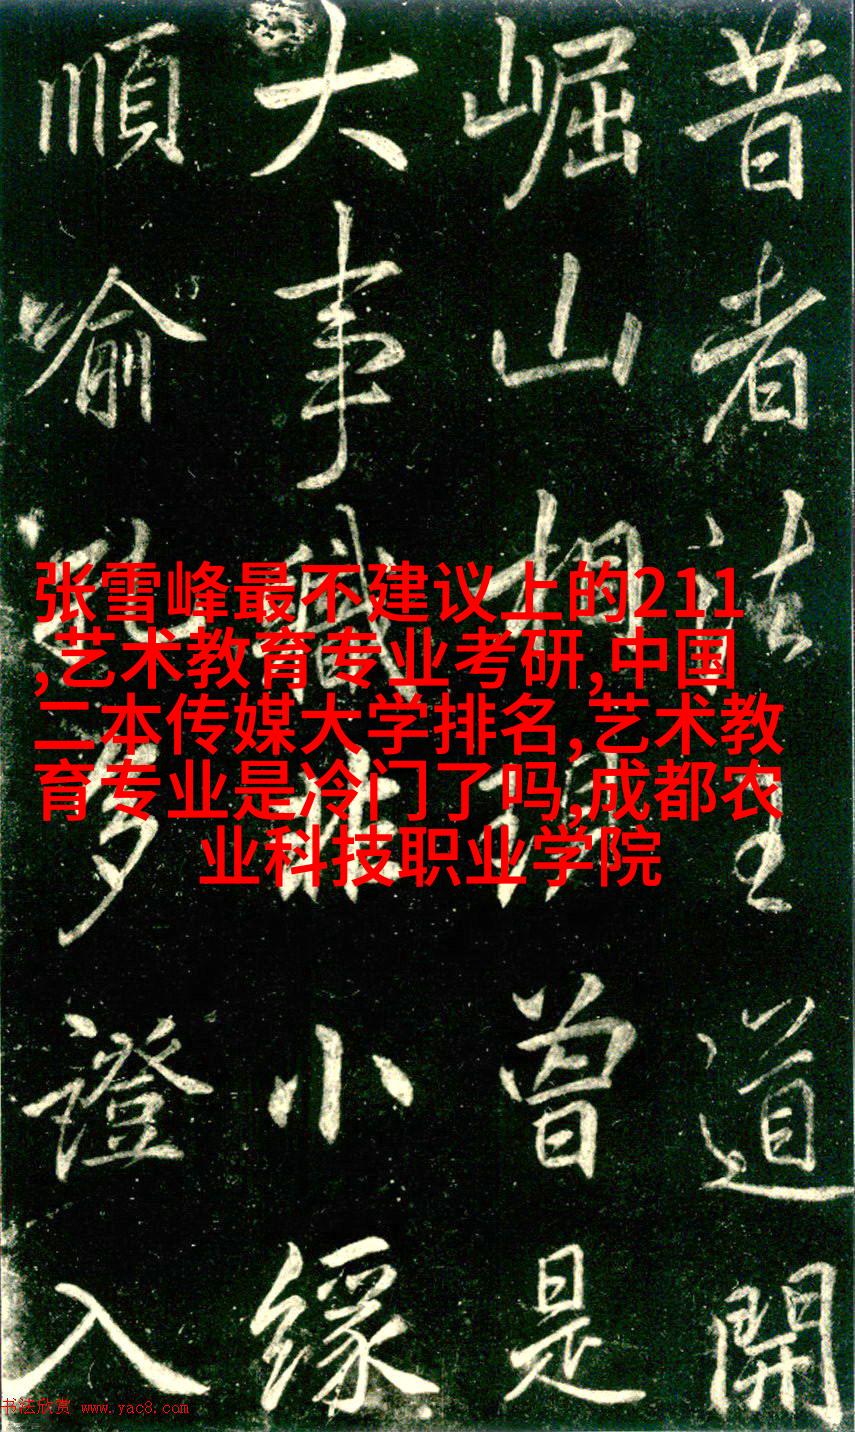 昔者法王道開
崛山相現曾是
大事職非小緣
順喻既多證入
张雪峰最不建议上的211
,艺术教育专业考研,中国
二本传媒大学排名,艺术教
育专业是冷门了吗,成都农
业科技职业学院
书法欣赏 www.yac8.com